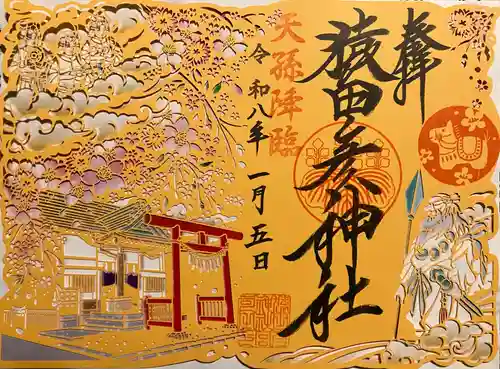 奉拝
猿田彦神社
天孫降臨
令和八年一月五日